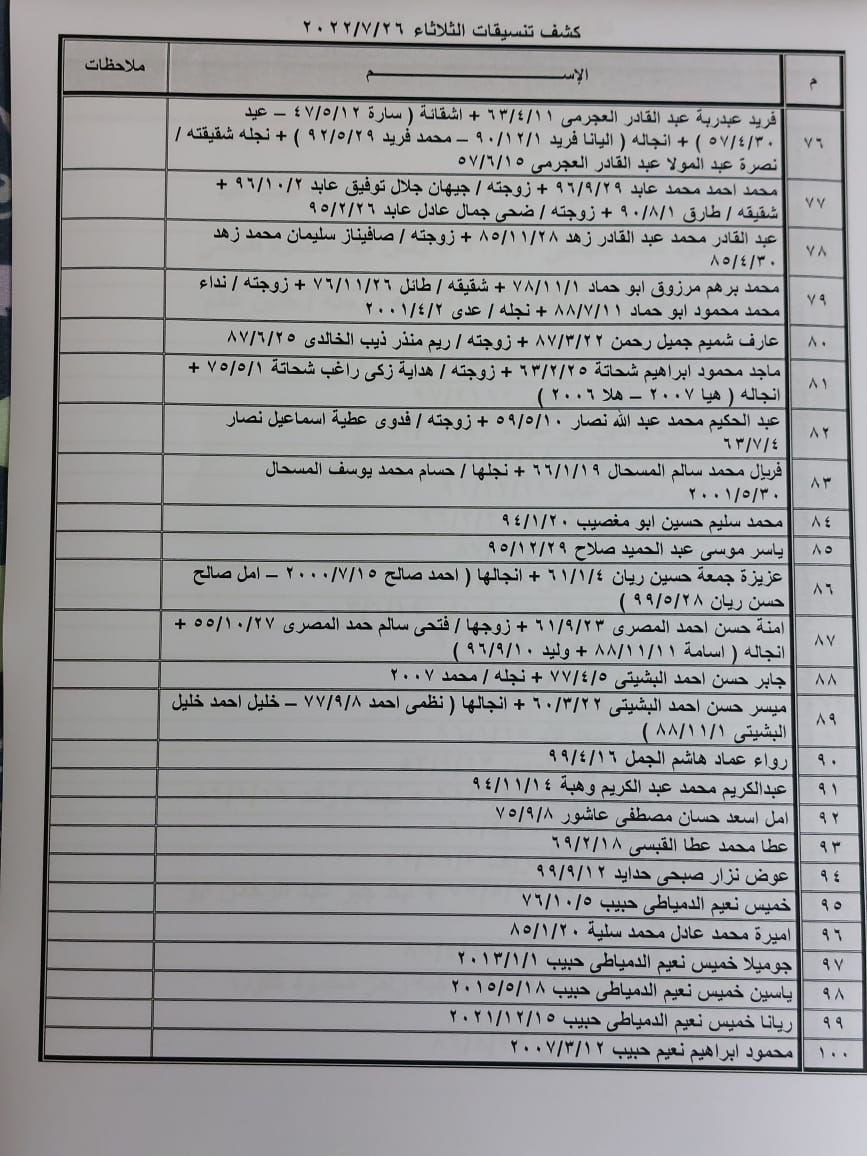 كشف تنسيقات الثلاثاء ٢٠٢٢/٧/٢٦
م الإســــــــــــم ملاحظات
٧٦ فريد عبدربة عبد القادر العجرمى ٦٣/٤/١١ + اشقائة ( سارة ٤٧/٥/١٢ – عيد
٥٧/٤/٣٠ ) + انجاله ( اليانا فريد ٩٠/١٢/١ – محمد فريد ٩٢/٥/٢٩ ) + نجله شقيقته /
نصرة عبد المولا عبد القادر العجرمى ٥٧/٦/١٥
٧٧ محمد احمد محمد عابد ٩٦/٩/٢٩ + زوجته / جيهان جلال توفيق عابد ٩٦/١٠/٢ +
شقيقه / طارق ٩٠/٨/١ + زوجته / ضحى جمال عادل عابد ٩٥/٢/٢٦
٧٨ عبد القادر محمد عبد القادر زهد ٨٥/١١/٢٨ + زوجته / صافيناز سليمان محمد زهد
٨٥/٤/٣٠
٧٩ محمد برهم مرزوق ابو حماد ٧٨/١١/١ + شقيقه / طائل ٧٦/١١/٢٦ + زوجته / نداء
محمد محمود ابو حماد ٨٨/٧/١١ + نجله / عدى ٢٠٠١/٤/٢
٨٠ عارف شميم جميل رحمن ٨٧/٣/٢٢ + زوجته / ريم منذر ذيب الخالدى ٨٧/٦/٢٥
٨١ ماجد محمود ابراهيم شحاتة ٦٣/٢/٢٥ + زوجته / هداية زكى راغب شحاتة ٧٥/٥/١ +
انجاله ( هيا ٢٠٠٧ – هلا ٢٠٠٦ )
٨٢ عبد الحكيم محمد عبد الله نصار ٥٩/٥/١٠ + زوجته / فدوى عطية اسماعيل نصار
٦٣/٧/٤
٨٣ فريال محمد سالم المسحال ٦٦/١/١٩ + نجلها / حسام محمد يوسف المسحال
٢٠٠١/٥/٣٠
٨٤ محمد سليم حسين ابو مغصيب ٩٤/١/٢٠
٨٥ ياسر موسى عبد الحميد صلاح ٩٥/١٢/٢٩
٨٦ عزيزة جمعة حسين ريان ٦١/١/٤ + انجالها ( احمد صالح ٢٠٠٠/٧/١٥ – امل صالح
حسن ريان ٩٩/٥/٢٨ )
٨٧ امنة حسن احمد المصرى ٦١/٩/٢٣ + زوجها / فتحى سالم حمد المصرى ٥٥/١٠/٢٧ +
انجاله ( اسامة ٨٨/١١/١١ + وليد ٩٦/٩/١٠ )
٨٨ جابر حسن احمد البشيتى ٧٧/٤/٥ + نجله / محمد ٢٠٠٧
٨٩ ميسر حسن احمد البشيتى ٦٠/٣/٢٢ + انجالها ( نظمى احمد ٧٧/٩/٨ – خليل احمد خليل
البشيتى ٨٨/١١/١ )
٩٠ رواء عماد هاشم الجمل ٩٩/٤/١٦
٩١ عبدالكريم محمد عبد الكريم وهبة ٩٤/١١/١٤
٩٢ امل اسعد حسان مصطفى عاشور ٧٥/٩/٨
٩٣ عطا محمد عطا القبسى ٦٩/٢/١٨
٩٤ عوض نزار صبحى حدايد ٩٩/٩/١٢
٩٥ خميس نعيم الدمياطى حبيب ٧٦/١٠/٥
٩٦ اميرة محمد عادل محمد سلية ٨٥/١/٢٠
٩٧ جوميلا خميس نعيم الدمياطى حبيب ٢٠١٣/١/١
٩٨ ياسين خميس نعيم الدمياطى حبيب ٢٠١٥/٥/١٨
٩٩ ريانا خميس نعيم الدمياطى حبيب ٢٠٢١/١٢/١٥
١٠٠ محمود ابراهيم نعيم حبيب ٢٠٠٧/٣/١٢